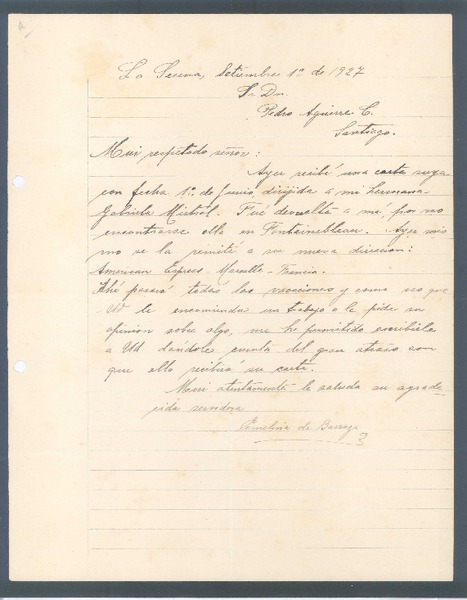 La Serena, Setiembre 1º de 1927
Sr Dn.
Pedro Aguirre C.
Santiago.
Mui respetado señor:
Ayer recibí una carta suya
con fecha 1º. de Junio dirijida a mi hermana
Gabriela Mistral. Fué devuelta a mí, por no
encontrarse ella en Fontainebleau. Ayer mis
mo se la remití a su nueva direccion:
American Express - Marseille - Francia.
Ahí pasará todas las vacaciones y como creo que
Ud le encomienda un trabajo o le pide su
opinión sobre algo, me he permitido escribirle
a Ud dándole cuenta del gran atraso con
que ella recibirá su carta.
Mui atentamente le saluda su agrade-
cida servidora
Emelina de Barraza